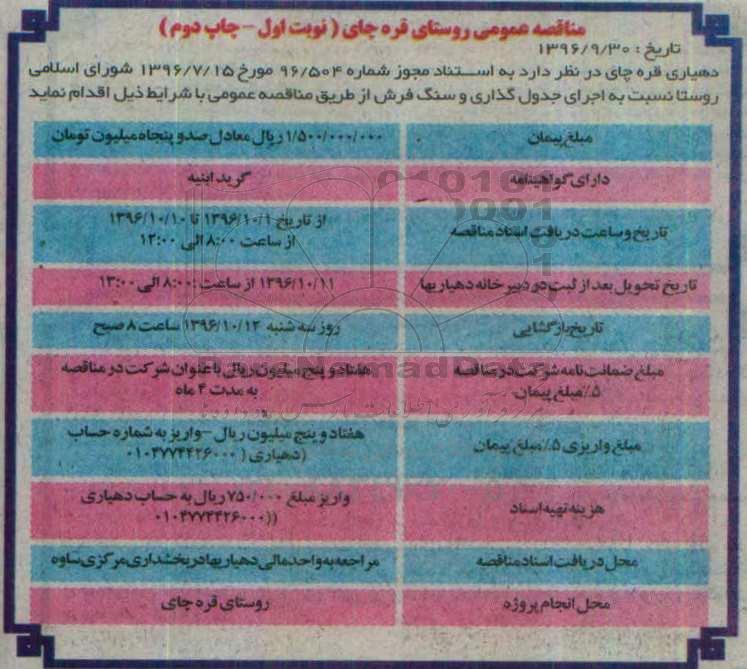 مناقصه عمومی روستای قره چای ( نوبت اول - چاپ دوم )
تاریخ : ۱۳۹۶/۹/۳۰
دهیاری قره چای در نظر دارد به استناد مجوز شماره ۹۶/۵۰۴ مورخ ۱۳۹۶/۷/۱۵ شورای اسلامی
روستا نسبت به اجرای جدول گذاری و سنگ فرش از طریق مناقصه عمومی با شرایط ذیل اقدام نماید
مبلغ پیمان
۱/۵۰۰/۰۰۰/۰۰۰ ریال معادل صدو پنجاه میلیون تومان
دارای گواهینامه
گرید ابنیه
تاریخ و ساعت دریافت اسناد مناقصه
از تاریخ ۱۳۹۶/۱۰/۱ تا ۱۳۹۶/۱۰/۱۰
از ساعت ۸:۰۰ الی ۱۳:۰۰
تاریخ تحویل بعد از ثبت در دبیرخانه دهیاریها
۱۳۹۶/۱۰/۱۱ از ساعت ۸:۰۰ الی ۱۳:۰۰
تاریخ بازگشایی
روز سه شنبه ۱۳۹۶/۱۰/۱۲ ساعت ۸ صبح
مبلغ ضمانت نامه شرکت در مناقصه
۵٪ مبلغ پیمان
هفتاد و پنج میلیون ریال با عنوان شرکت در مناقصه
به مدت ۴ ماه
مبلغ واریزی ۵٪ مبلغ پیمان
هفتاد و پنج میلیون ریال - واریز به شماره حساب
(دهیاری ( ۰۱۰۴۷۷۴۴۲۶۰۰۰
هزینه تهیه اسناد
واریز مبلغ ۷۵۰/۰۰۰ ریال به حساب دهیاری
((۰۱۰۴۷۷۴۴۲۶۰۰۰
محل دریافت اسناد مناقصه
مراجعه به واحد مالی دهیاریها در بخشداری مرکزی ساوه
محل انجام پروژه
روستای قره چای
ParsNamadData